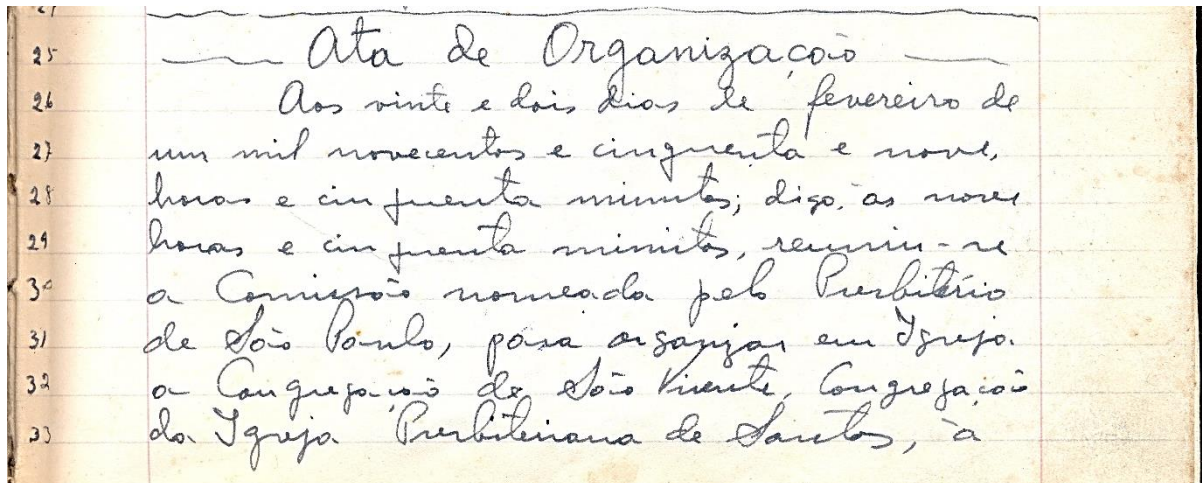 25 Ata de Organização
26 Aos vinte e dois dias de fevereiro de
27 um mil novecentos e cinquenta e nove,
28 horas e cinquenta minutos; digo, as nove
29 horas e cinquenta minutos, reuniu-se
30 a Comissão nomeada pelo Presbitério
31 de São Paulo, para organizar em Igreja
32 a Congregação de São Vicente, Congregação
33 da Igreja Presbiteriana de Santos, à